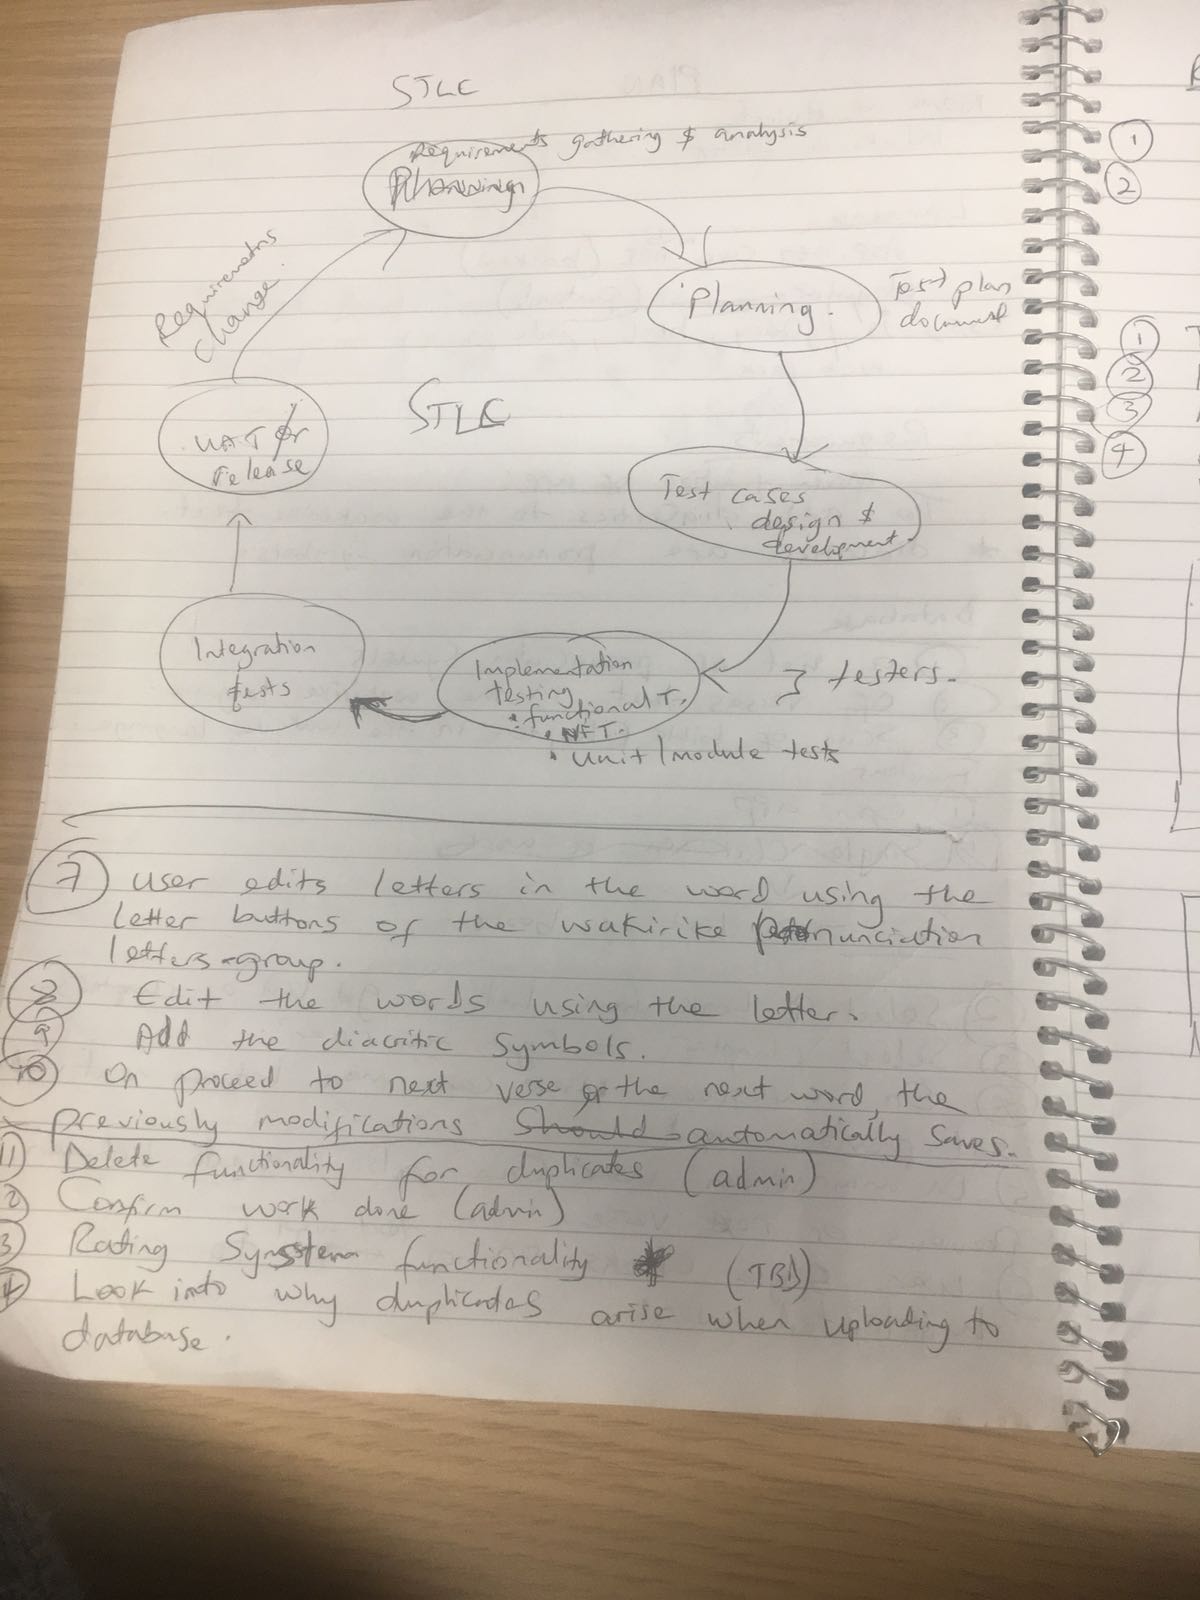 STLC
Requirements gathering & analysis
Planning
Requirements
change.
Planning.
Test plan
document
UAT or
release
STLC
Test cases
design &
development.
Integration
tests
Implementation
testing
• functional T.
• NFT.
• Unit/module tests
} testers.
7 User edits letters in the word using the
letter buttons of the wakirike pronunciation
letters-group.
8 Edit the words using the letter.
9 Add the diacritic symbols.
10 On proceed to next verse or the next word, the
previously modifications should automatically saves.
11 Delete functionality for duplicates (admin)
2 Confirm work done (admin)
3 Rating System functionality (TBD)
4 Look into why duplicates arise when uploading to
database.
1
2
1
2
3
4